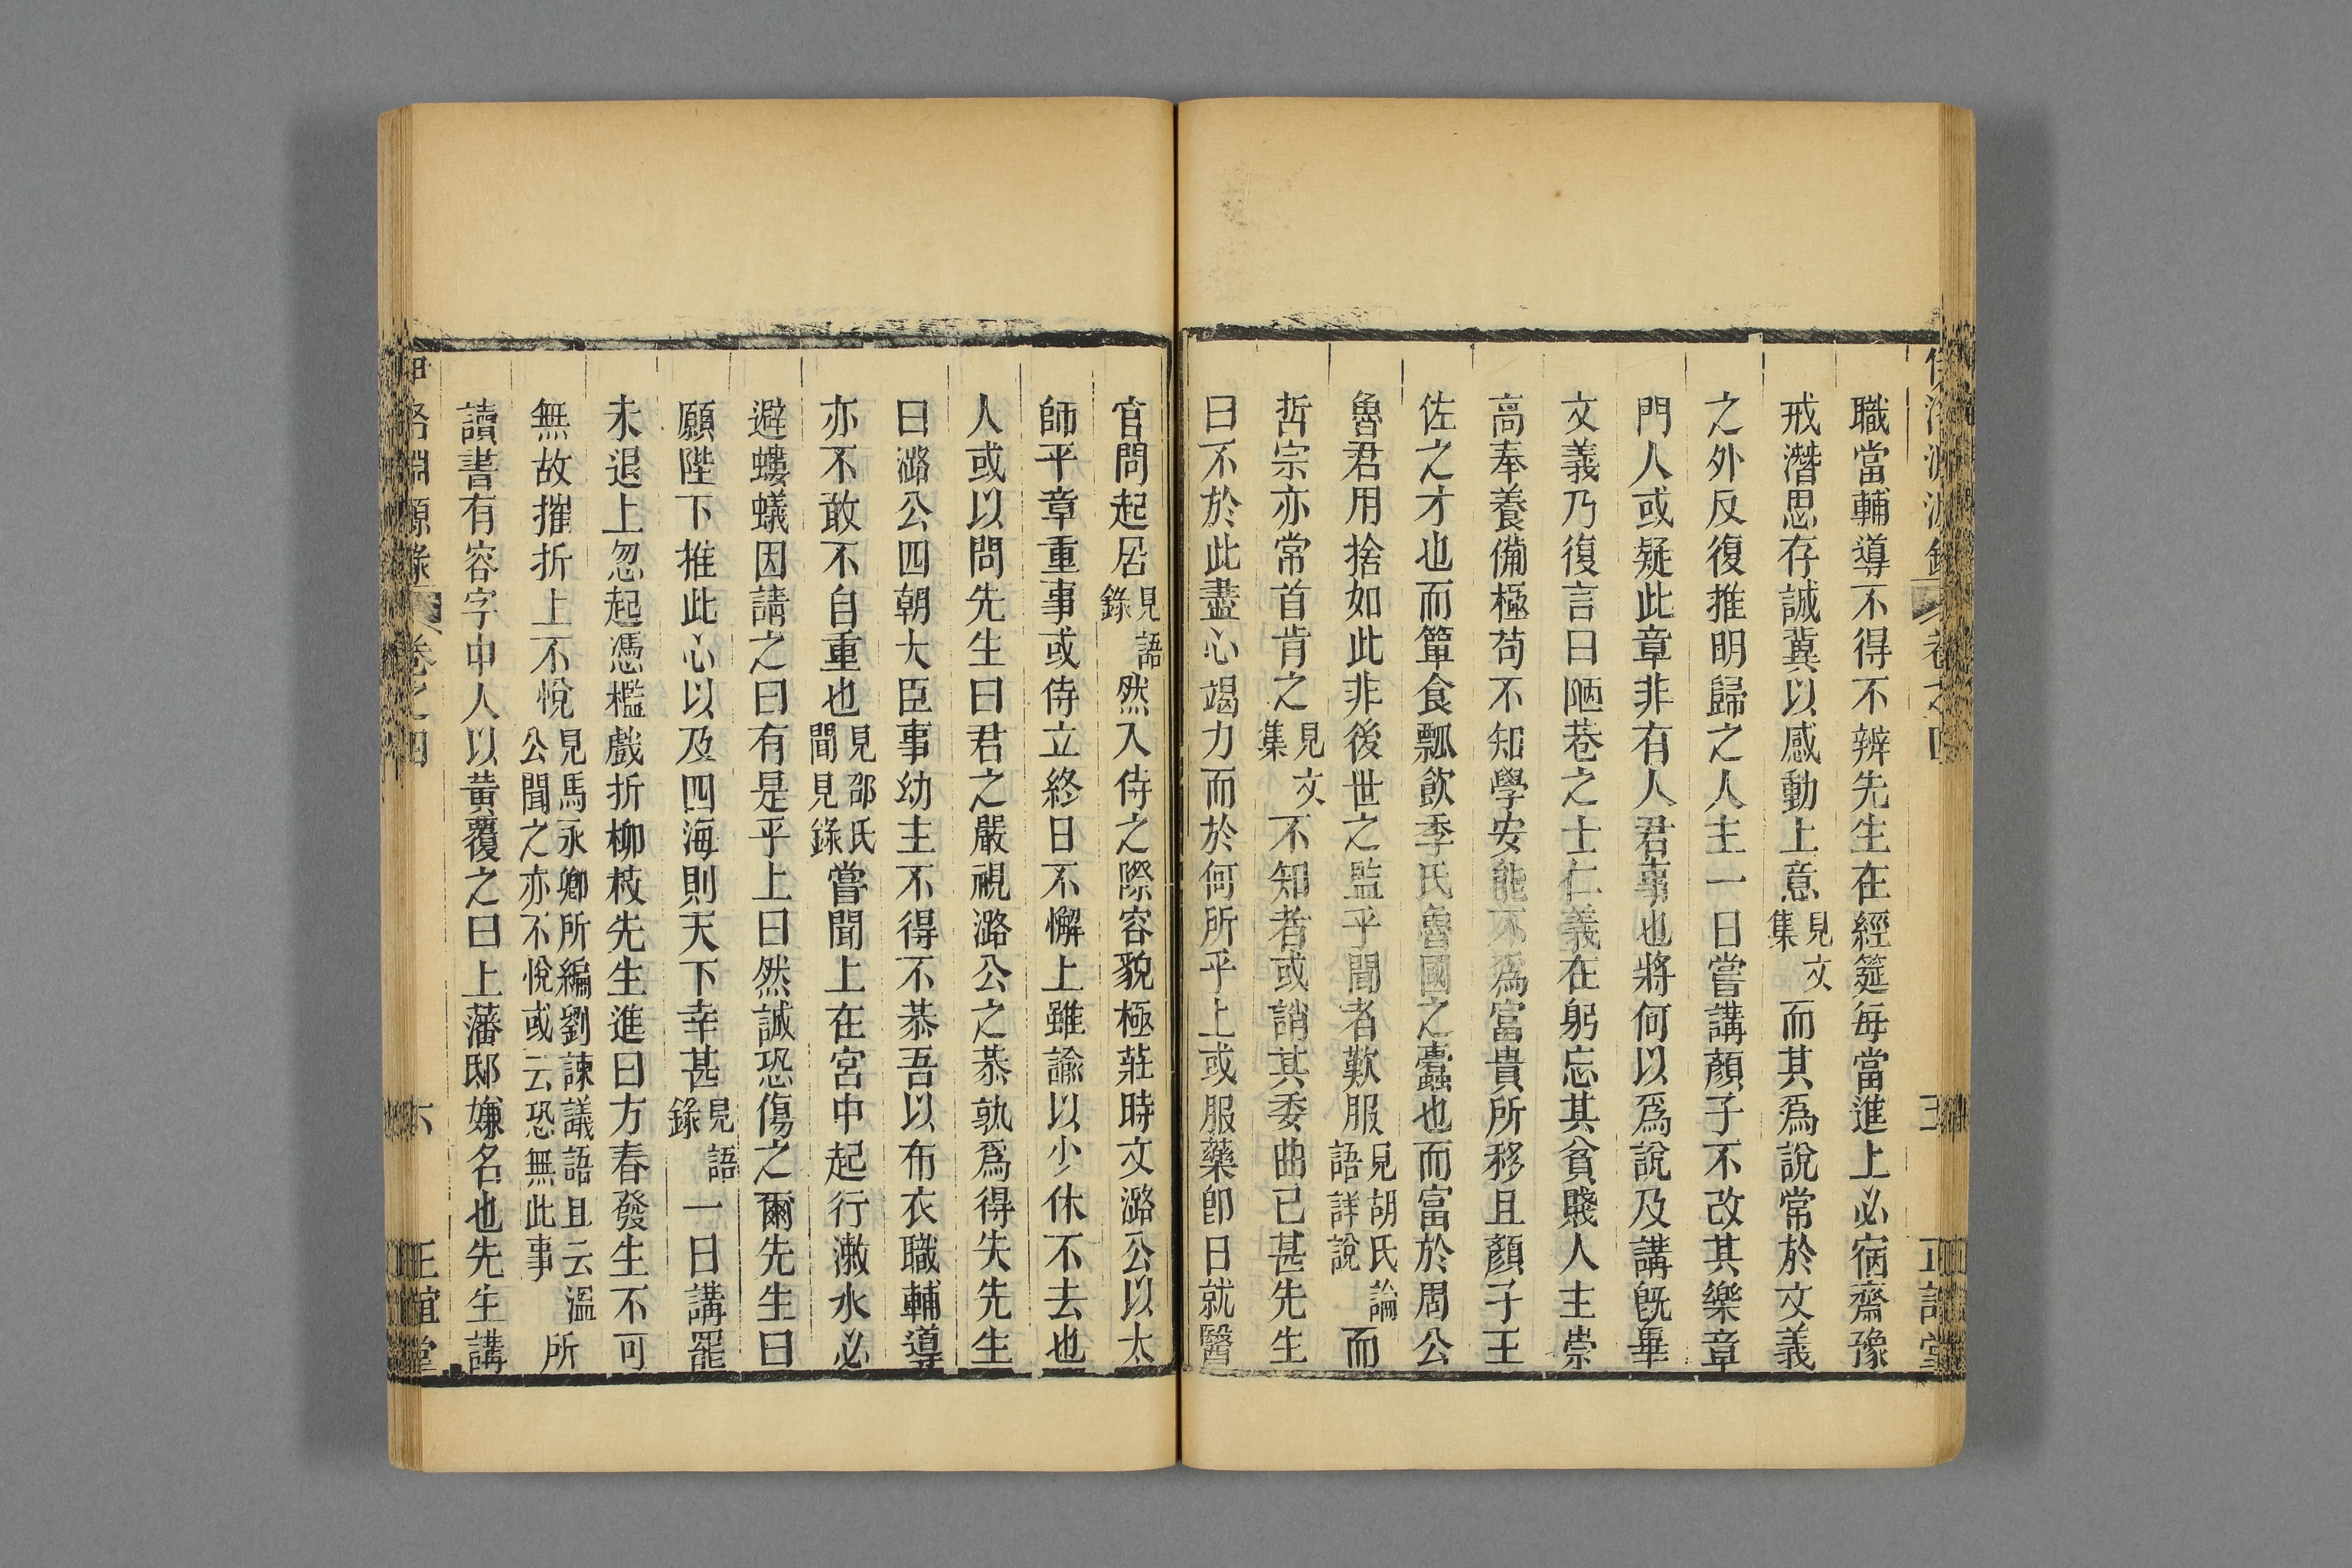 職當輔導不得不辨先生在經筵每當進上必宿齋豫
戒潛思存誠冀以感動上意見文集而其爲說常於文義
之外反復推明歸之人主一日嘗講顏子不改其樂章
門人或疑此章非有人君事也將何以爲說及講旣畢
文義乃復言曰陋巷之士仁義在躬忘其貧賤人主崇
高奉養備極苟不知學安能不爲富貴所移且顏子王
佐之才也而簞食瓢飮季氏魯國之蠹也而富於周公
魯君用捨如此非後世之監乎聞者歎服見胡氏論語詳說而
哲宗亦常首肯之見文集不知者或誚其委曲已甚先生
曰不於此盡心竭力而於何所乎上或服藥卽日就醫
官問起居見語錄然入侍之際容貌極莊時文潞公以太
師平章重事或侍立終日不懈上雖諭以少休不去也
人或以問先生曰君之嚴視潞公之恭孰爲得失先生
曰潞公四朝大臣事幼主不得不恭吾以布衣職輔導
亦不敢不自重也見邵氏聞見錄嘗聞上在宮中起行漱水必
避螻蟻因請之曰有是乎上曰然誠恐傷之爾先生曰
願陛下推此心以及四海則天下幸甚見語錄一日講罷
未退上忽起憑檻戲折柳枝先生進曰方春發生不可
無故摧折上不悅見馬永卿所編劉諫議語且云溫公聞之亦不悅或云恐無此事所
讀書有容字中人以黃覆之曰上藩邸嫌名也先生講
卷之四
六
正誼堂